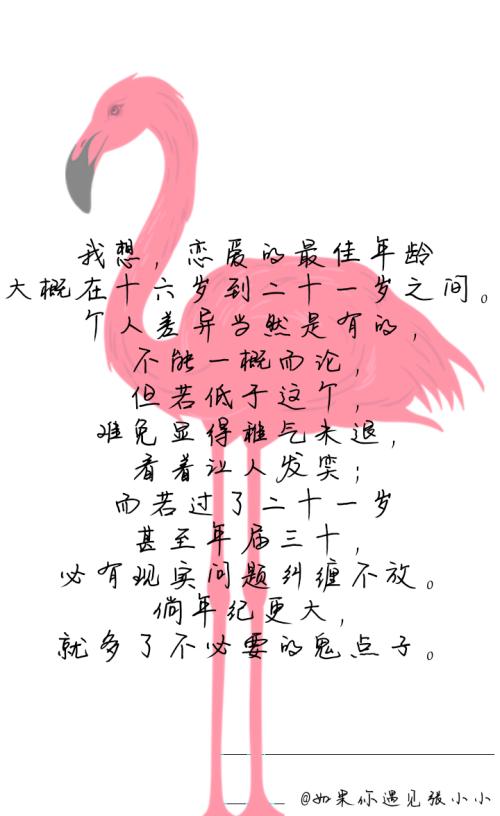 我想，恋爱的最佳年龄
大概在十六岁到二十一岁之间。
个人差异当然是有的，
不能一概而论，
但若低于这个，
难免显得稚气未退，
看着让人发笑；
而若过了二十一岁
甚至年届三十，
必有现实问题纠缠不放。
倘年纪更大，
就多了不必要的鬼点子。
@如果你遇见张小小